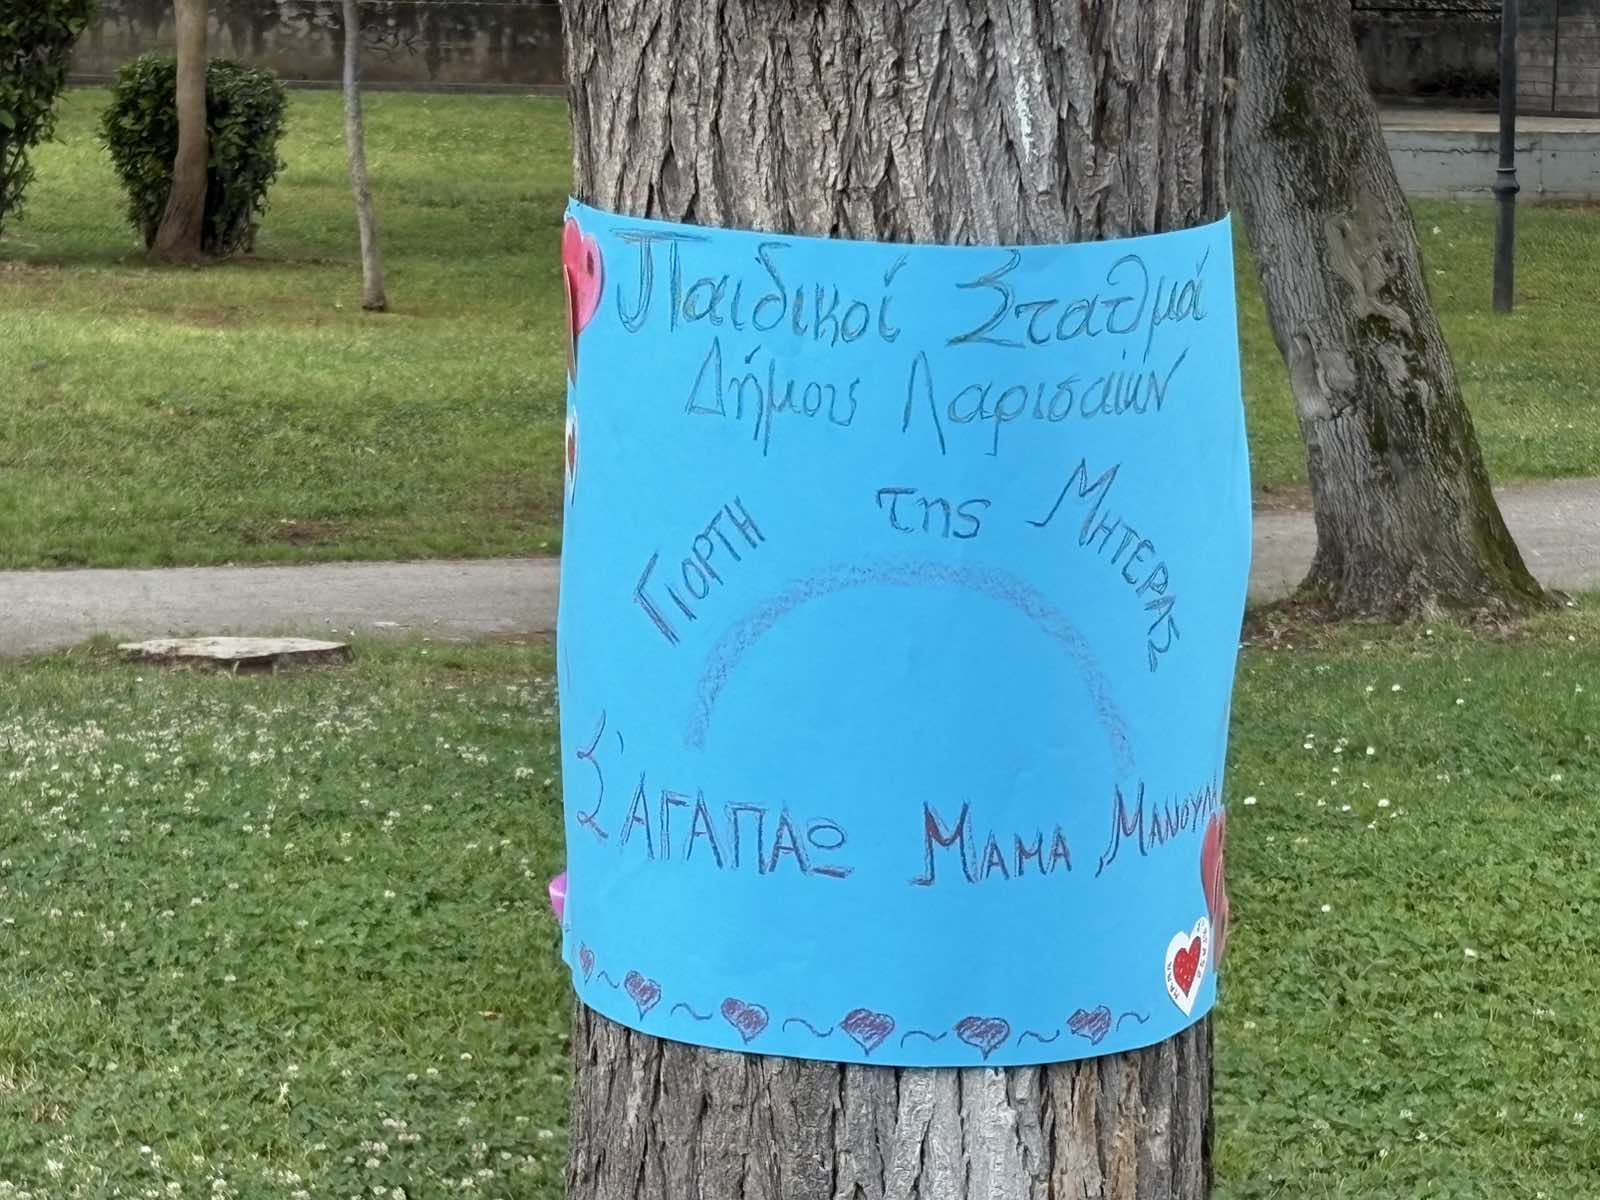 Παιδικοί Σταθμοί
Δήμου Λαρισαίων
ΓΙΟΡΤΗ της ΜΗΤΕΡΑΣ
Σ'ΑΓΑΠΑΩ ΜΑΜΑ ΜΑΝΟΥΛΑ